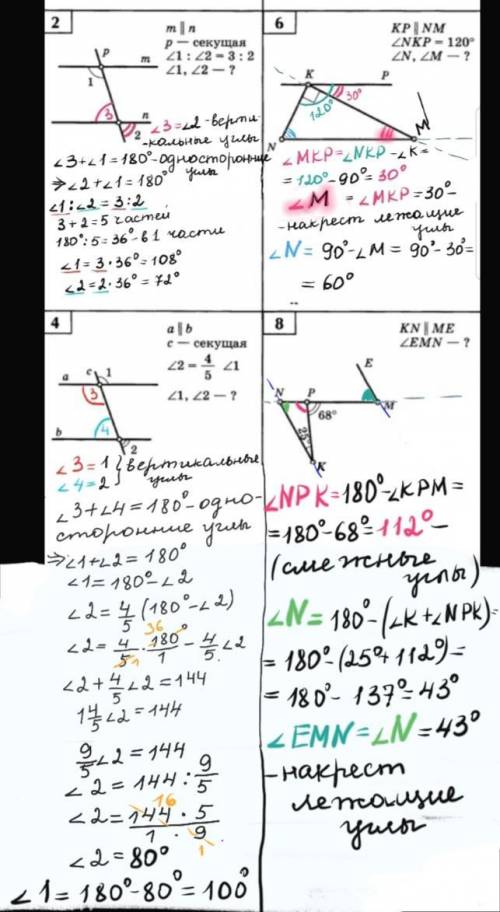 2
m ∥ n
p — секущая
∠1 : ∠2 = 3 : 2
∠1, ∠2 — ?
p
m
1
3
n
2
∠3=∠2-верти-
кальные углы
∠3+∠1=180°-односторонние
углы
⇒∠2+∠1=180°
∠1:∠2=3:2
3+2=5 частей
180°:5=36°-в 1 части
∠1=3·36°=108°
∠2=2·36°=72°
6
KP ∥ NM
∠NKP = 120°
∠N, ∠M — ?
K
P
30°
120°
N
M
∠MKP=∠NKP-∠K=
=120°-90°=30°
∠M = ∠MKP=30°-
-накрест лежащие
углы
∠N= 90°-∠M = 90°-30°=
= 60°
4
a ∥ b
c — секущая
∠2 = 4/5 ∠1
∠1, ∠2 — ?
a
c
1
3
b
4
2
∠3=1 } вертикальные
∠4=2 } углы
∠3+∠4=180°-одно-
сторонние углы
⇒∠1+∠2=180°
∠1=180°-∠2
∠2=4/5(180°-∠2)
36
∠2=4/5·180°/1-4/5∠2
1
∠2+4/5∠2=144
1 4/5∠2=144
9/5∠2=144
∠2=144:9/5
16
∠2=144·5/1·9
1
∠2=80°
∠1=180°-80°=100°
8
KN ∥ ME
∠EMN — ?
E
N
P
68°
M
25°
K
∠NPK=180°-∠KPM=
=180°-68°=112°-
(смежные
углы)
∠N=180°-(∠K+∠NPK)=
=180°-(25°+112°)=
=180°-137°=43°
∠EMN=∠N=43°
-накрест
лежащие
углы